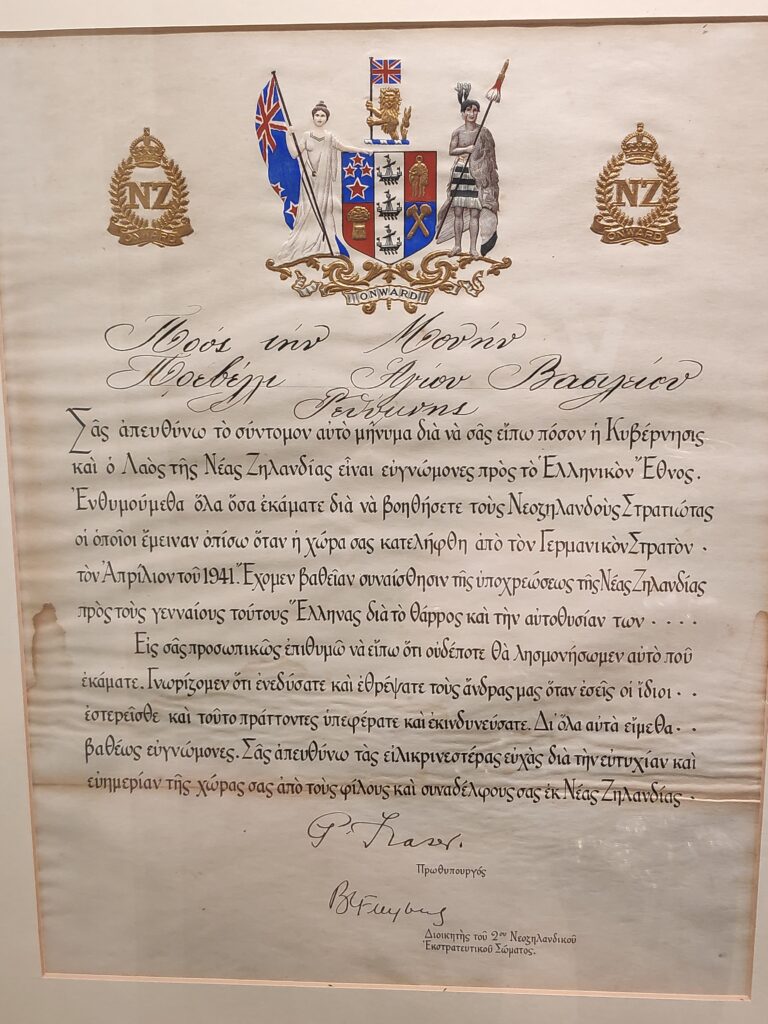 NZ
ONWARD
ONWARD
NZ
ONWARD
Πρός τήν Μονήν
Πρεβέλι Αγίου Βασιλείου
Ρεθύμνης
Σᾶς ἀπευθύνω τὸ σύντομον αὐτὸ μήνυμα διὰ νὰ σᾶς εἴπω πόσον ἡ Κυβέρνησις
καὶ ὁ Λαὸς τῆς Νέας Ζηλανδίας εἶναι εὐγνώμονες πρὸς τὸ Ἑλληνικὸν Ἔθνος.
Ἐνθυμούμεθα ὅλα ὅσα ἐκάματε διὰ νὰ βοηθήσετε τοὺς Νεοζηλανδοὺς Στρατιώτας
οἱ ὁποῖοι ἔμειναν ὀπίσω ὅταν ἡ χώρα σας κατελήφθη ἀπὸ τὸν Γερμανικὸν Στρατὸν .
τὸν Ἀπρίλιον τοῦ 1941. Ἔχομεν βαθεῖαν συναίσθησιν τῆς ὑποχρεώσεως τῆς Νέας Ζηλανδίας
πρὸς τοὺς γενναίους τούτους Ἕλληνας διὰ τὸ θάρρος καὶ τὴν αὐτοθυσίαν των . . . .
Εἰς σᾶς προσωπικῶς ἐπιθυμῶ νὰ εἴπω ὅτι οὐδέποτε θὰ λησμονήσωμεν αὐτὸ ποῦ
ἐκάματε. Γνωρίζομεν ὅτι ἐνεδύσατε καὶ ἐθρέψατε τοὺς ἄνδρας μας ὅταν ἐσεῖς οἱ ἴδιοι . .
ἐστερεῖσθε καὶ τοῦτο πράττοντες ὑπεφέρατε καὶ ἐκινδυνεύσατε. Δι᾽ ὅλα αὐτὰ εἴμεθα . .
βαθέως εὐγνώμονες. Σᾶς ἀπευθύνω τὰς εἰλικρινεστέρας εὐχὰς διὰ τὴν εὐτυχίαν καὶ
εὐημερίαν τῆς χώρας σας ἀπὸ τοὺς φίλους καὶ συναδέλφους σας ἐκ Νέας Ζηλανδίας .
P. Fraser.
Πρωθυπουργός
B C Freyberg
Διοικητὴς τοῦ 2ου Νεοζηλανδικοῦ
Ἐκστρατευτικοῦ Σώματος.